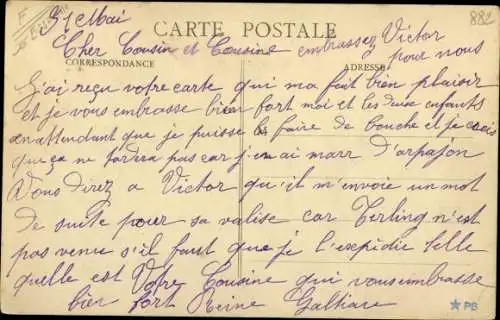 31 Mai
CARTE POSTALE
882
Cher Cousin et Cousine embrassez Victor
pour nous
CORRESPONDANCE
ADRESSE
J'ai reçu votre carte qui ma fait bien plaisir
et je vous embrasse bien fort moi et les deux enfants
en attendant que je puisse le faire de bouche et je crois
que ça ne tardera pas car j'en ai marr d'arpajon
Vous direz a Victor qu'il m'envoie un mot
de suite pour sa valise car Terling n'est
pas venu s'il faut que je l'expédie telle
quelle est Votre Cousine qui vous embrasse
bien fort Reine Galhiare
PB